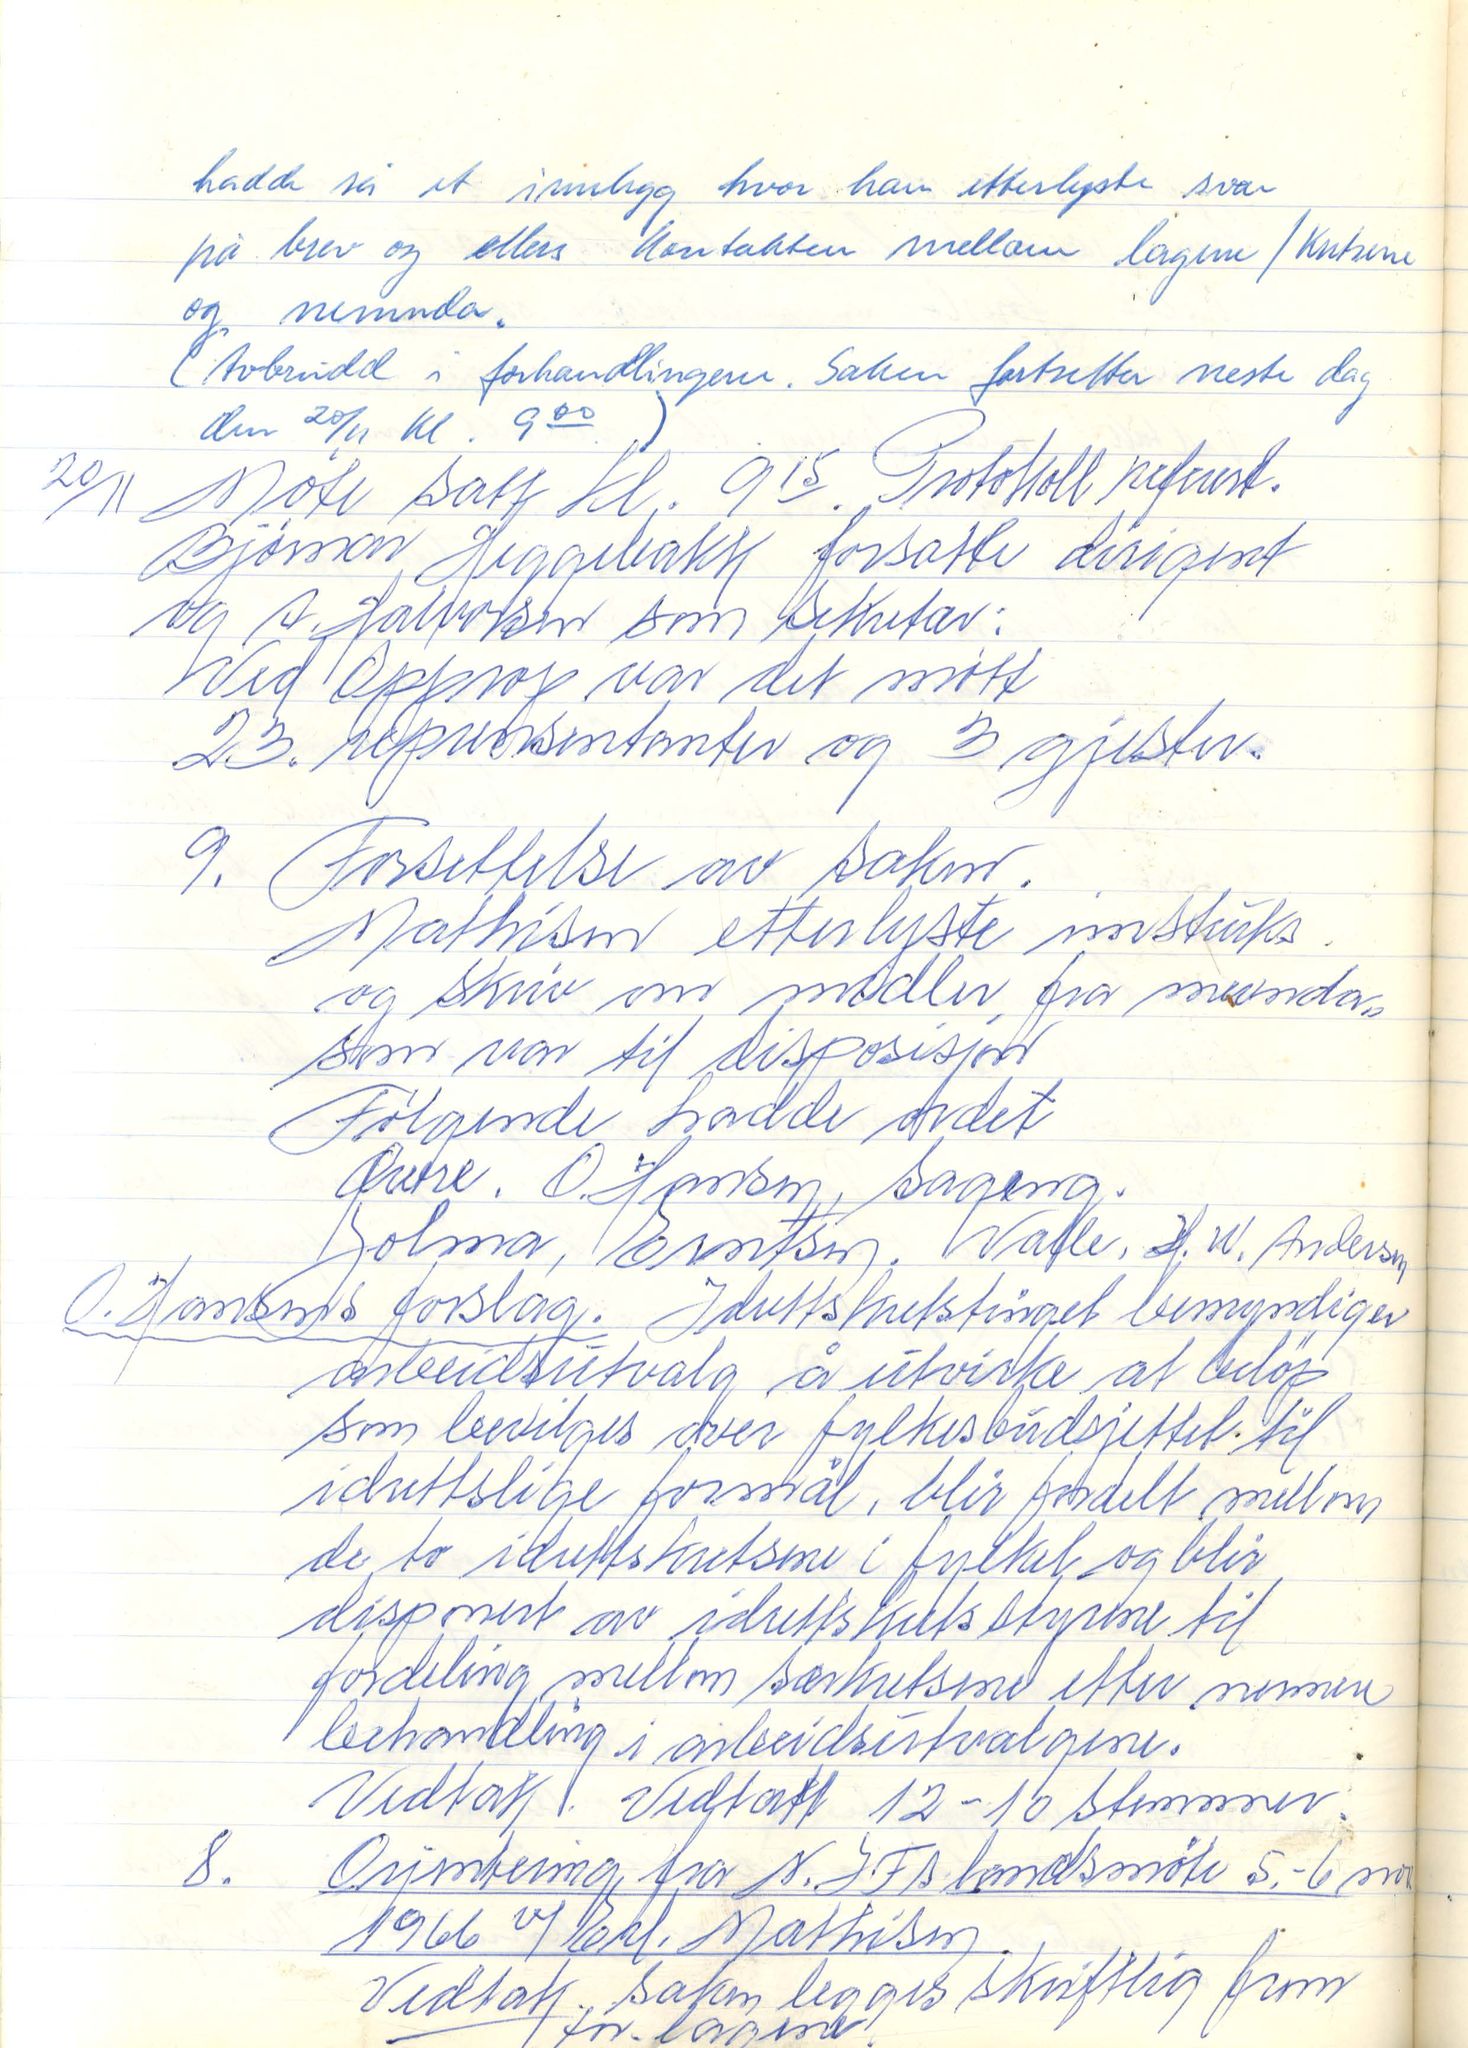 hadde så et innlegg hvor han etterlyste svar
på brev og ellers kontakten mellom lagene / kretsene
og nemnda.
(Avbrudd i forhandlingene. Saken fortsetter neste dag
den 20/11 kl. 9 00)
20/11 Møte satt kl. 9 15. Protokoll referert.
Bjørnar Heggebakk forsatte dirigent
og A. Halvorsen som sekretær:
Ved Opprop var det møtt
23. representanter og 3 gjester.
9. Forsettelse av saken.
Mathisen etterlyste
og skriv om midler, fra nemnda,
som var til disposisjon
Følgende hadde ordet
O. Hansen, Sageng.
Holma, Valle, H. W. Andersen
O. Hansens forslag. Idrettskretstinget bemyndiger
arbeidsutvalg å utvirke at beløp
som bevilges over fylkesbudsjettet til
idrettslige formål, blir fordelt mellom
de to idrettskretsene i fylket og blir
disponert av idrettskretsstyrene til
fordeling mellom særkretsene etter nermere
behandling i arbeidsutvalgene.
Vedtak. Vedtatt 12-10 stemmer.
8. Orientering fra N.I.Fs landsmøte 5.-6 nov
1966 v/ Erl. Mathisen.
Vedtak. Saken legges skriftlig fram
for lagene.